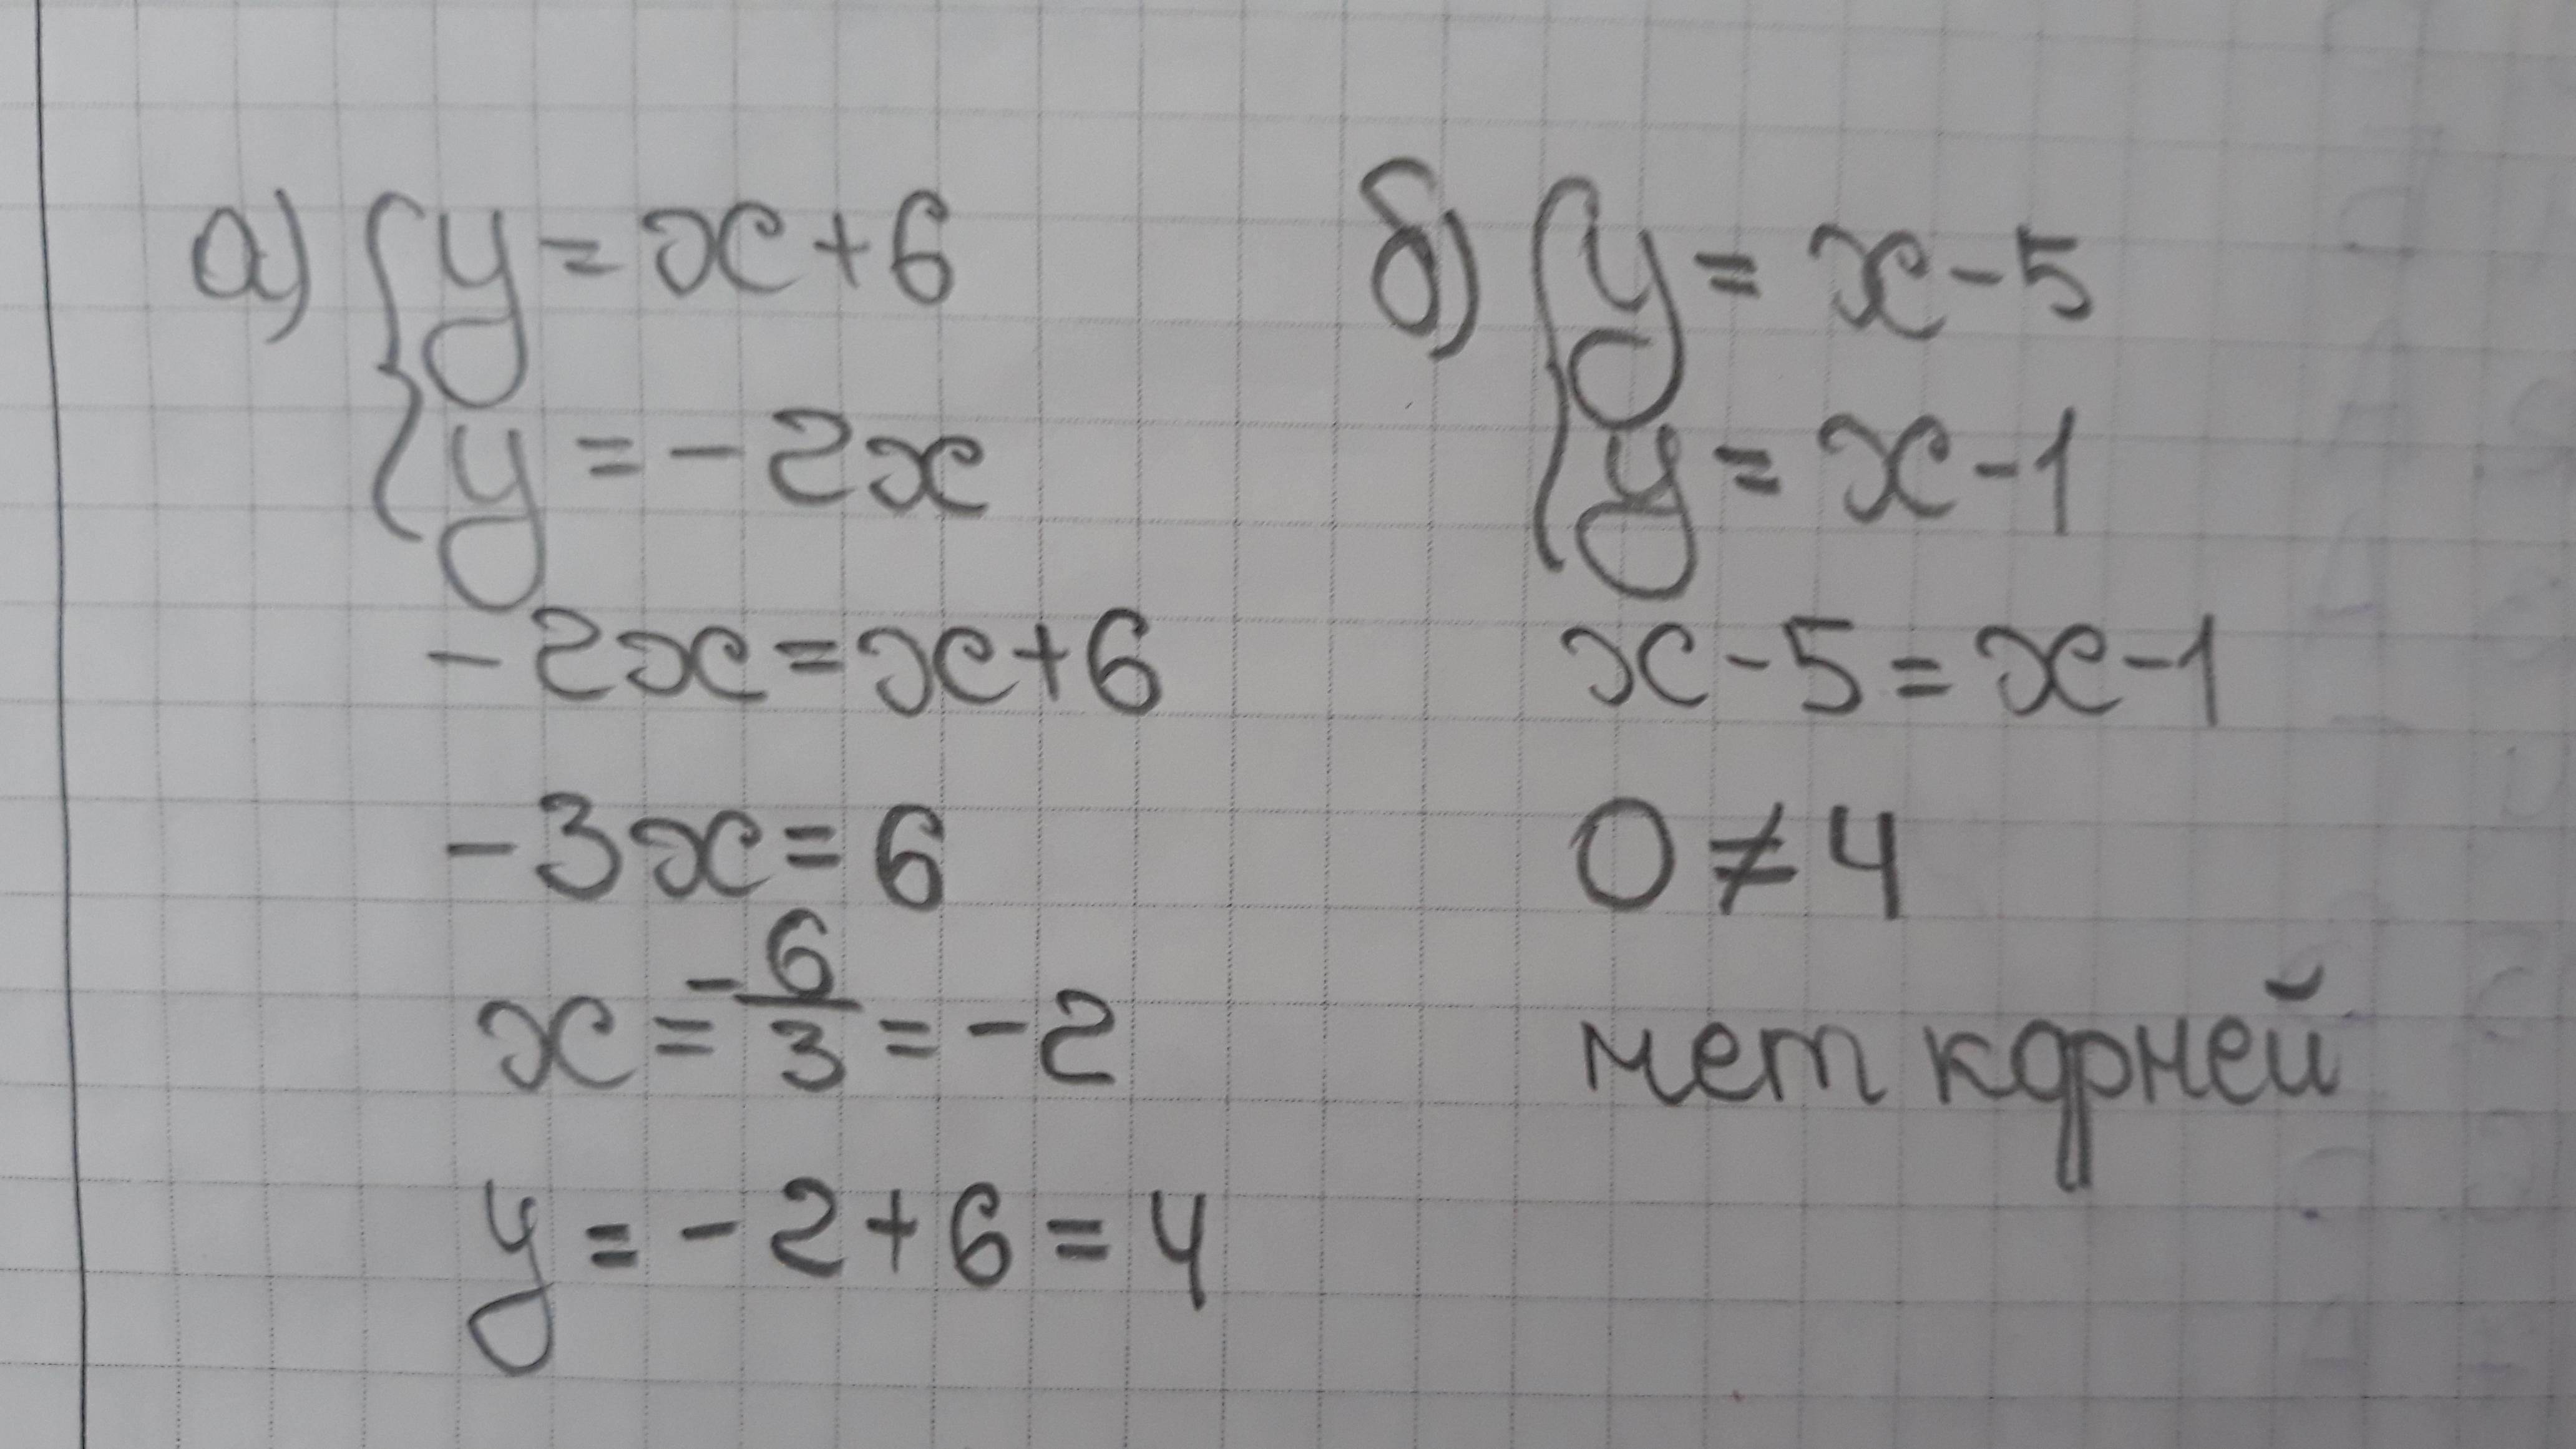 а) { y = x + 6
y = - 2x
- 2x = x + 6
- 3x = 6
x = - 6/3 = - 2
y = - 2 + 6 = 4
б) { y = x - 5
y = x - 1
x - 5 = x - 1
0 ≠ 4
нет корней